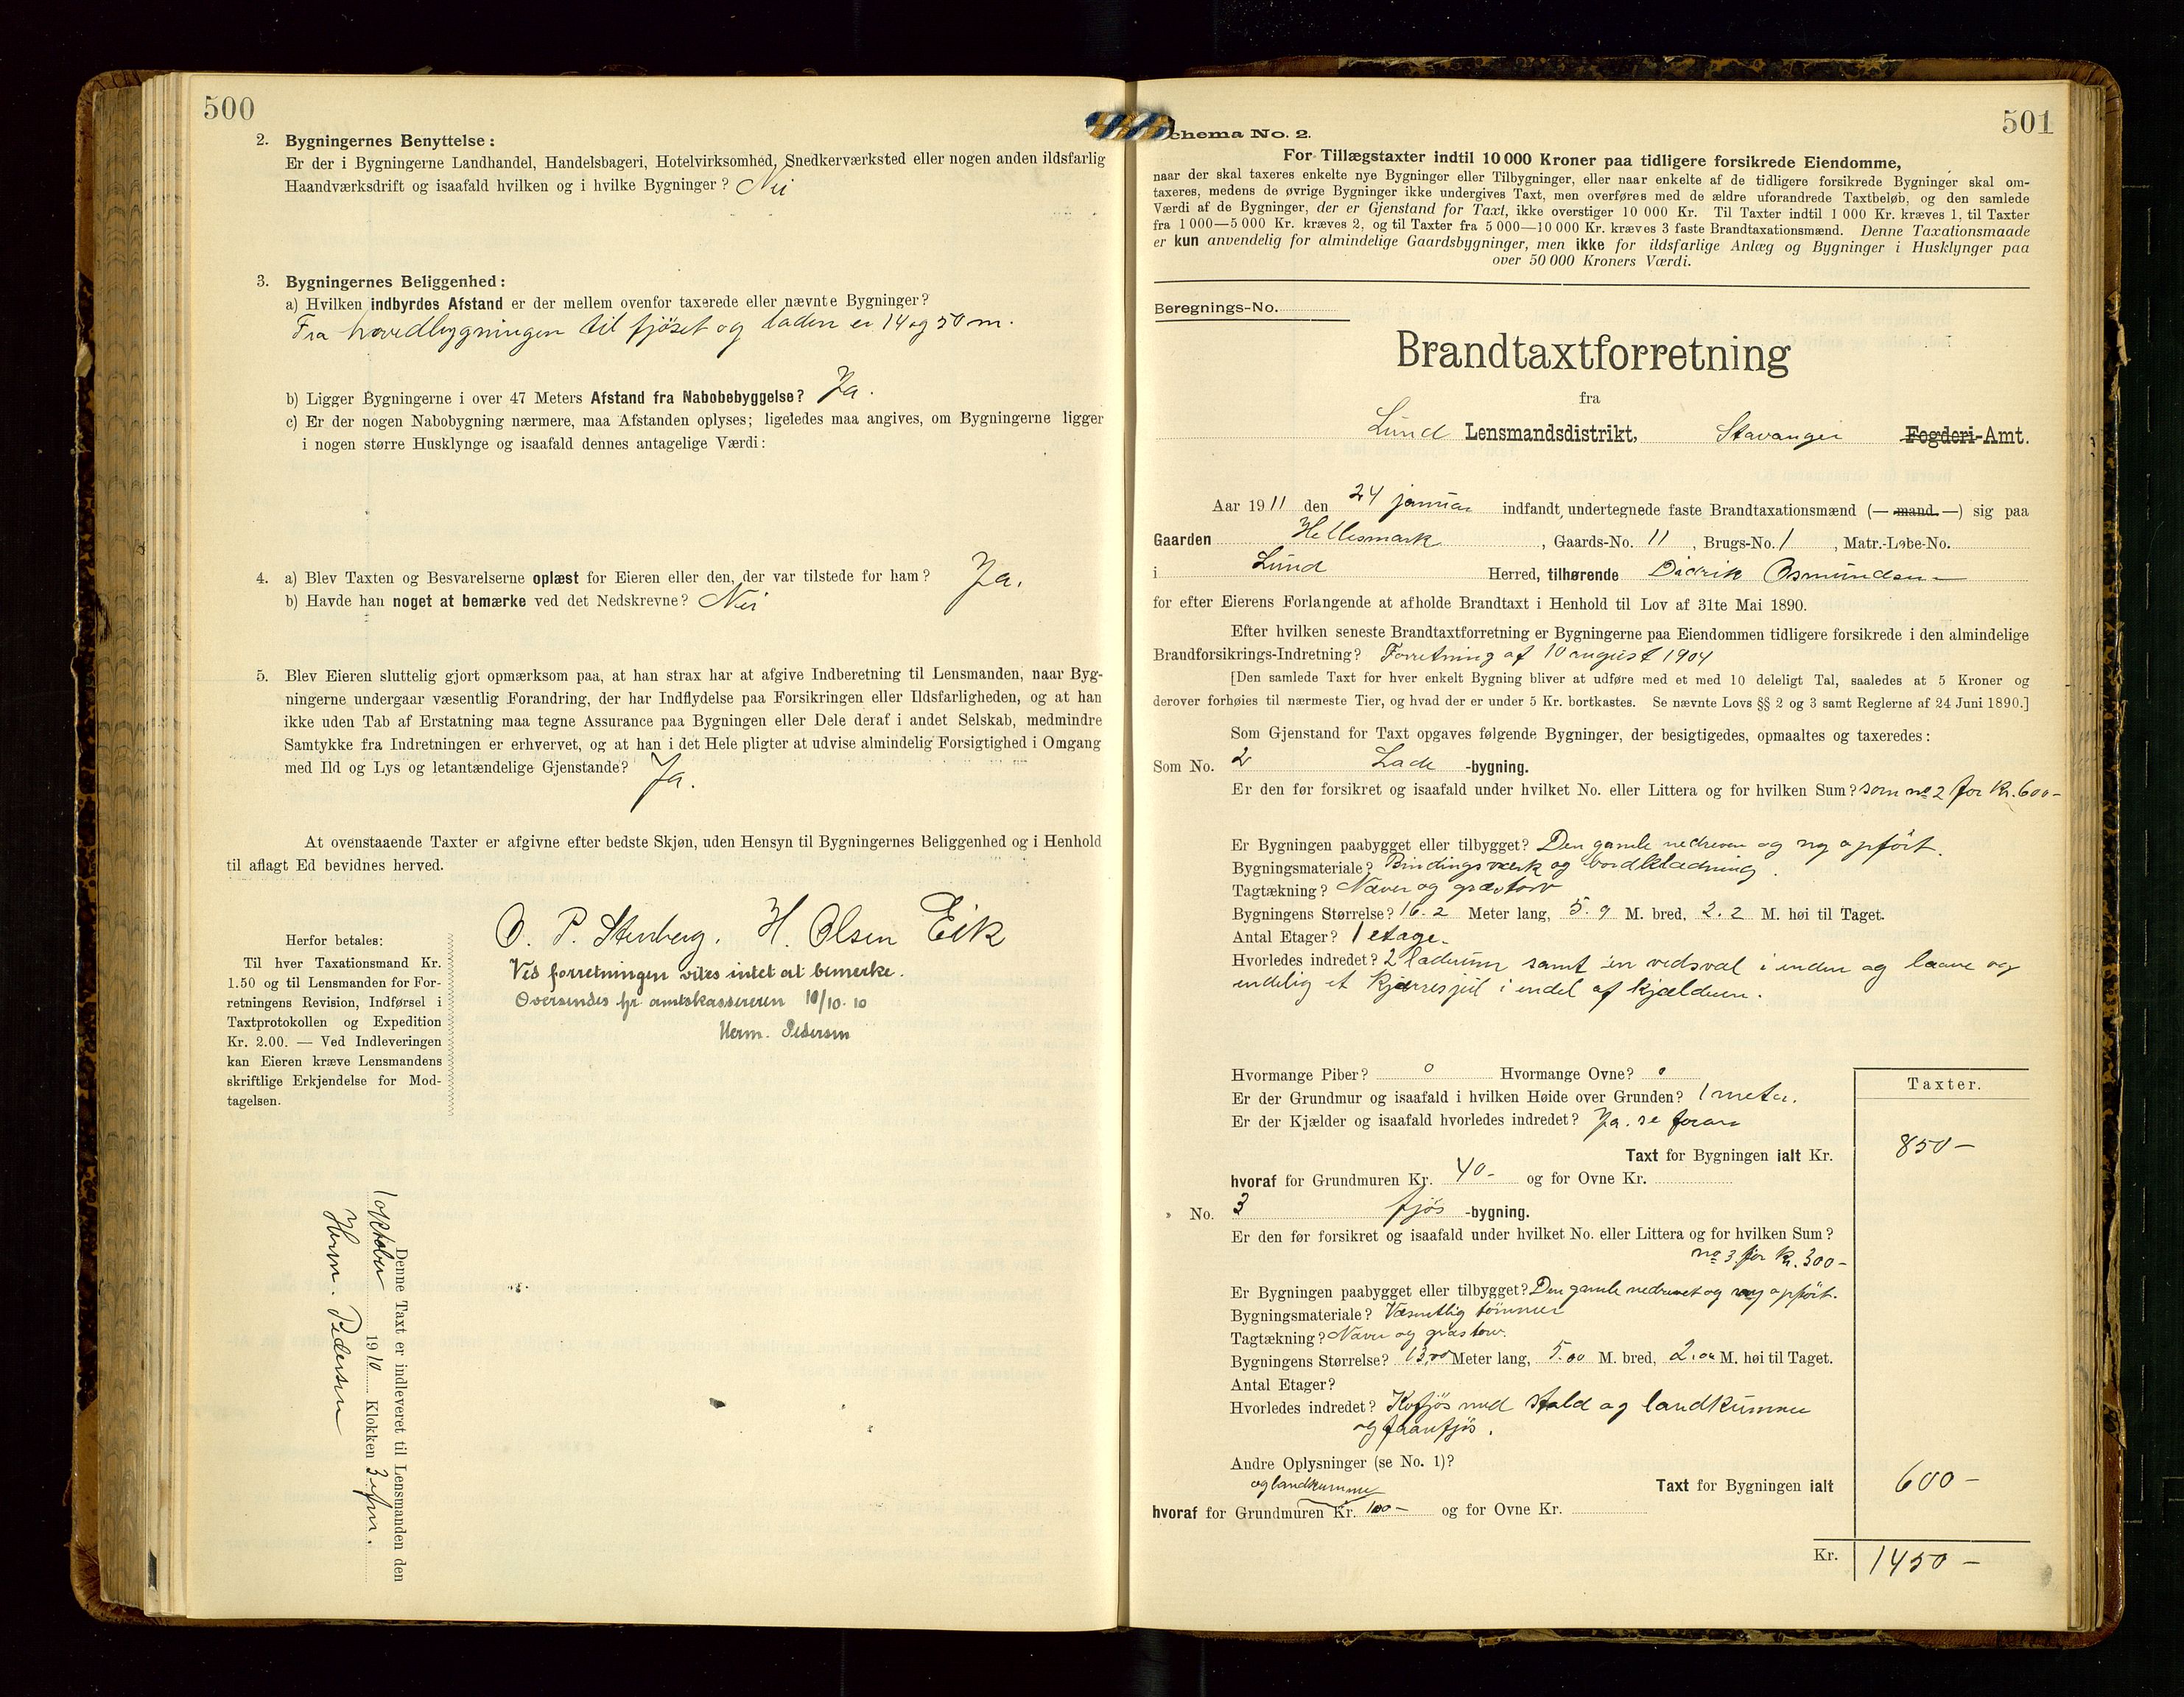 500
2. Bygningernes Benyttelse:
Er der i Bygningerne Landhandel, Handelsbageri, Hotelvirksomhed, Snedkerværksted eller nogen anden ildsfarlig
Haandværksdrift og isaafald hvilken og i hvilke Bygninger? Nei
3. Bygningernes Beliggenhed:
a) Hvilken indbyrdes Afstand er der mellem ovenfor taxerede eller nævnte Bygninger?
Fra hovedbygningen til fjöset og laden er 14 og 50 m.
b) Ligger Bygningerne i over 47 Meters Afstand fra Nabobebyggelse? Ja.
c) Er der nogen Nabobygning nærmere, maa Afstanden oplyses; ligeledes maa angives, om Bygningerne ligger
i nogen større Husklynge og isaafald dennes antagelige Værdi:
4. a) Blev Taxten og Besvarelserne oplæst for Eieren eller den, der var tilstede for ham? Ja.
b) Havde han noget at bemærke ved det Nedskrevne? Nei
5. Blev Eieren sluttelig gjort opmærksom paa, at han strax har at afgive Indberetning til Lensmanden, naar Byg-
ningerne undergaar væsentlig Forandring, der har Indflydelse paa Forsikringen eller Ildsfarligheden, og at han
ikke uden Tab af Erstatning maa tegne Assurance paa Bygningen eller Dele deraf i andet Selskab, medmindre
Samtykke fra Indretningen er erhvervet, og at han i det Hele pligter at udvise almindelig Forsigtighed i Omgang
med Ild og Lys og letantændelige Gjenstande? Ja.
At ovenstaaende Taxter er afgivne efter bedste Skjøn, uden Hensyn til Bygningernes Beliggenhed og i Henhold
til aflagt Ed bevidnes herved.
O. P. Stenberg. H. Olsen Eik
Ved forretningen vites intet at bemerke.
Oversendes hr amtskassereren 10/10. 10
Herm. Pedersen
Herfor betales:
Til hver Taxationsmand Kr.
1.50 og til Lensmanden for For-
retningens Revision, Indførsel i
Taxtprotokollen og Expedition
Kr. 2.00. — Ved Indleveringen
kan Eieren kræve Lensmandens
skriftlige Erkjendelse for Mod-
tagelsen.
Denne Taxt er indleveret til Lensmanden den
1 oktober 1910 Klokken 3 efm.
Herm. Pedersen
501
chema No. 2.
For Tillægstaxter indtil 10 000 Kroner paa tidligere forsikrede Eiendomme,
naar der skal taxeres enkelte nye Bygninger eller Tilbygninger, eller naar enkelte af de tidligere forsikrede Bygninger skal om-
taxeres, medens de øvrige Bygninger ikke undergives Taxt, men overføres med de ældre uforandrede Taxtbeløb, og den samlede
Værdi af de Bygninger, der er Gjenstand for Taxt, ikke overstiger 10 000 Kr. Til Taxter indtil 1 000 Kr. kræves 1, til Taxter
fra 1 000—5 000 Kr. kræves 2, og til Taxter fra 5 000—10 000 Kr. kræves 3 faste Brandtaxationsmænd. Denne Taxationsmaade
er kun anvendelig for almindelige Gaardsbygninger, men ikke for ildsfarlige Anlæg og Bygninger i Husklynger paa
over 50 000 Kroners Værdi.
Beregnings-No.
Brandtaxtforretning
fra
Lund Lensmandsdistrikt, Stavanger Fogderi-Amt.
Aar 1911 den 24 januar indfandt undertegnede faste Brandtaxationsmænd (— mand. —) sig paa
Gaarden Hellesmark, Gaards-No. 11, Brugs-No. 1, Matr.-Løbe-No.
i Lund Herred, tilhørende Didrik Osmundsen
for efter Eierens Forlangende at afholde Brandtaxt i Henhold til Lov af 31te Mai 1890.
Efter hvilken seneste Brandtaxtforretning er Bygningerne paa Eiendommen tidligere forsikrede i den almindelige
Brandforsikrings-Indretning? Forretning af 10 august 1904
[Den samlede Taxt for hver enkelt Bygning bliver at udføre med et med 10 deleligt Tal, saaledes at 5 Kroner og
derover forhøies til nærmeste Tier, og hvad der er under 5 Kr. bortkastes. Se nævnte Lovs §§ 2 og 3 samt Reglerne af 24 Juni 1890.]
Som Gjenstand for Taxt opgaves følgende Bygninger, der besigtigedes, opmaaltes og taxeredes:
Som No. 2 Lade -bygning.
Er den før forsikret og isaafald under hvilket No. eller Littera og for hvilken Sum? som no 2 for Kr. 600-
Er Bygningen paabygget eller tilbygget? Den gamle nedreven og ny opfört.
Bygningsmateriale? Bindingsverk og bordklædning.
Tagtækning? Næver og græstorv
Bygningens Størrelse? 16.2 Meter lang, 5.9 M. bred, 2.2 M. høi til Taget.
Antal Etager? 1 etage.
Hvorledes indret? 2 laderum samt en vedsval i enden og laave og
endelig et kjærreskjul i endel af kjælderen.
Hvormange Piber? 0 Hvormange Ovne? 0
Er der Grundmur og isaafald i hvilken Høide over Grunden? 1 meter.
Er der Kjælder og isaafald hvorledes indredet? Ja. se foran
Taxter.
Taxt for Bygningen ialt Kr. 850-
hvoraf for Grundmuren Kr. 40- og for Ovne Kr.
" No. 3 fjös -bygning.
Er den før forsikret og isaafald under hvilket No. eller Littera og for hvilken Sum?
no 3 for kr. 300-
Er Bygningen paabygget eller tilbygget? Den gamle nedrevet og ny opfört.
Bygningsmateriale? Væsentlig tömmer
Tagtækning? Næver og græstorv.
Bygningens Størrelse? 13,00 Meter lang, 5.00 M. bred, 2.00 M. høi til Taget.
Antal Etager?
Hvorledes indredet? Kofjös med stald og landkummer
og faarefjös.
Andre Oplysninger (se No. 1)?
og landkumme
Taxt for Bygningen ialt 600-
hvoraf for Grundmuren Kr. 100- og for Ovne Kr.
Kr. 1450-